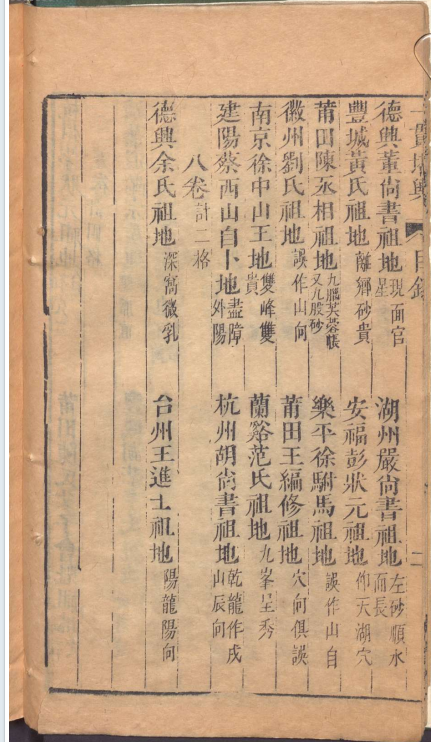 一貫堪輿 目錄 二
德興董尚書祖地 現面官星 湖州嚴尚書祖地 左砂順水而長
豐城黃氏祖地 離鄉砂貴 安福彭狀元祖地 仰天湖穴
莆田陳丞相祖地 九腦芙蓉帳又九股砂 樂平徐駙馬祖地 誤作山自
徽州劉氏祖地 誤作山向 莆田王編修祖地 穴向俱誤
南京徐中山王地 雙峰雙貴 蘭谿范氏祖地 九峯呈秀
建陽蔡西山自卜地 盡障外陽 杭州胡尚書祖地 乾龍作戌山辰向
八卷計二格
德興余氏祖地 深窩微乳 台州王進士祖地 陽龍陽向